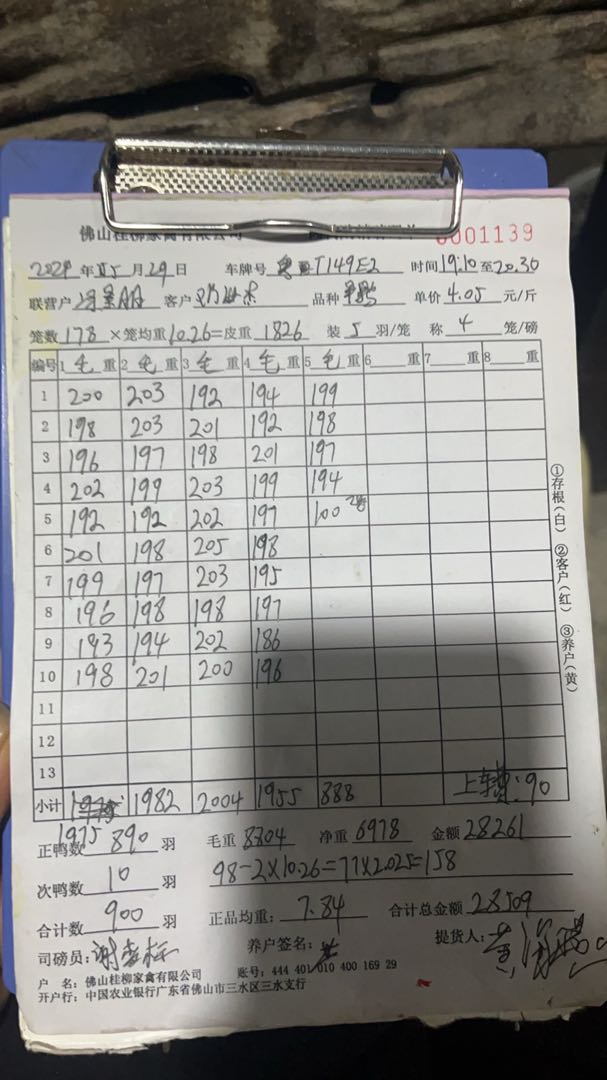 佛山桂柳家禽有限公司 0001139
2024年05月29日 车牌号 T149E2 时间 19.10至20.30
联营户 客户 品种 单价 4.05 元/斤
笼数 178 ×笼均重 10.26=皮重 1826 装 5 羽/笼 称 4 笼/磅
编号 1 毛 重 2 毛 重 3 毛 重 4 毛 重 5 毛 重 6 重 7 重 8 重
1 200 203 192 194 199
2 198 203 201 192 198
3 196 197 198 201 197
4 202 199 203 199 194
5 192 192 202 197 100
6 201 198 205 198
7 199 197 203 195
8 196 198 198 197
9 193 194 202 186
10 198 201 200 196
11
12
13
小计 1982 2004 1955 888 上车费:90
1975
正鸭数 890 羽 毛重 8804 净重 6978 金额 28261
次鸭数 10 羽 98-2×10.26=77×2.025=158
合计数 900 羽 正品均重: 7.84 合计总金额 28509
司磅员: 养户签名: 提货人:
户 名: 佛山桂柳家禽有限公司 账号: 444 401 010 400 169 29
开户行: 中国农业银行广东省佛山市三水区三水支行
①存根(白) ②客户(红) ③养户(黄)